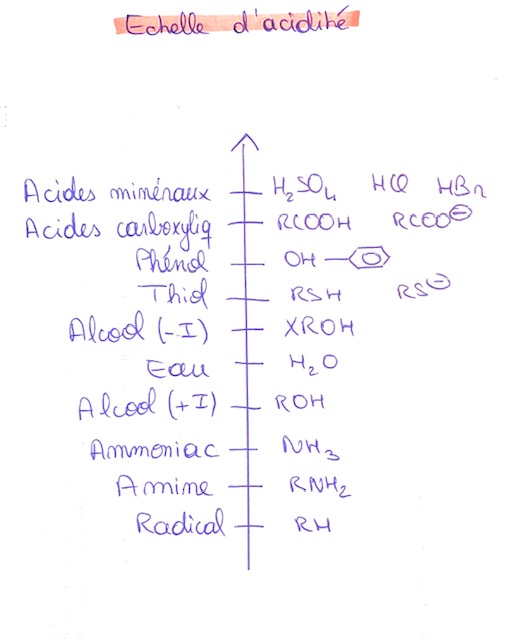 Echelle d'acidité
Acides minéraux H₂SO₄ HCl HBr
Acides carboxyliq RCOOH RCOO⊖
Phénol OH
Thiol RSH RS⊖
Alcool (-I) XROH
Eau H₂O
Alcool (+I) ROH
Ammoniac NH₃
Amine RNH₂
Radical RH